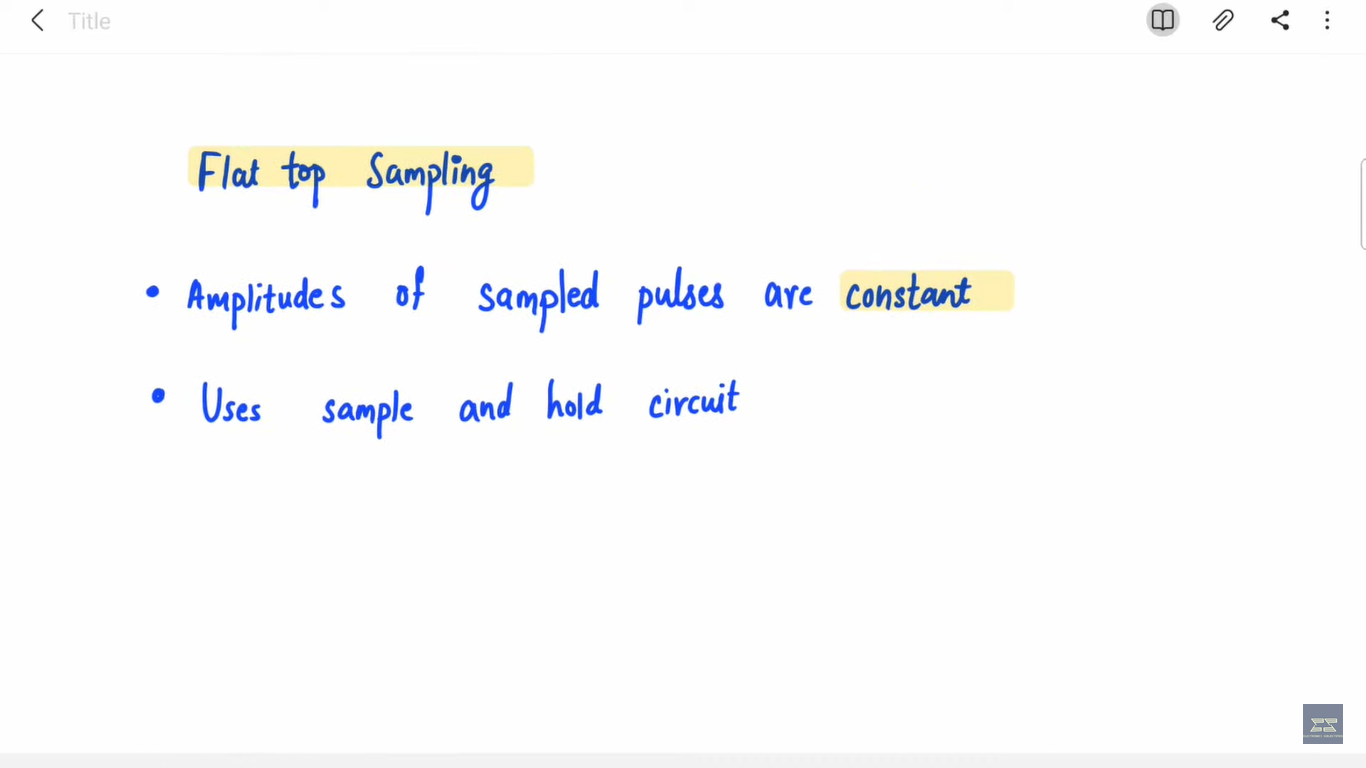 Title
Flat top Sampling
• Amplitudes of sampled pulses are constant
• Uses sample and hold circuit